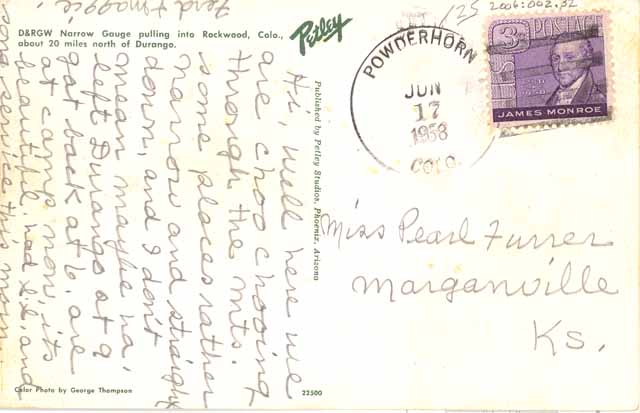 Ferd & maggie.
125
2006:002.32
D&RGW Narrow Gauge pulling into Rockwood, Colo.,
about 20 miles north of Durango.
Petley
POWDERHORN
JUN
17
1958
COLO.
3¢ POSTAGE
JAMES MONROE
Published by Petley Studios, Phoenix, Arizona
Hi, well here we
are choo chooing
through the mts.
some places rather
narrow and straight
down, and I don't
mean maybe ha,
left Durango at 9
got back at 6. are
at camp now, its
beautiful, had S.S. and
song service this morn
Miss Pearl Furrer
Marganville
Ks.
Color Photo by George Thompson
22500